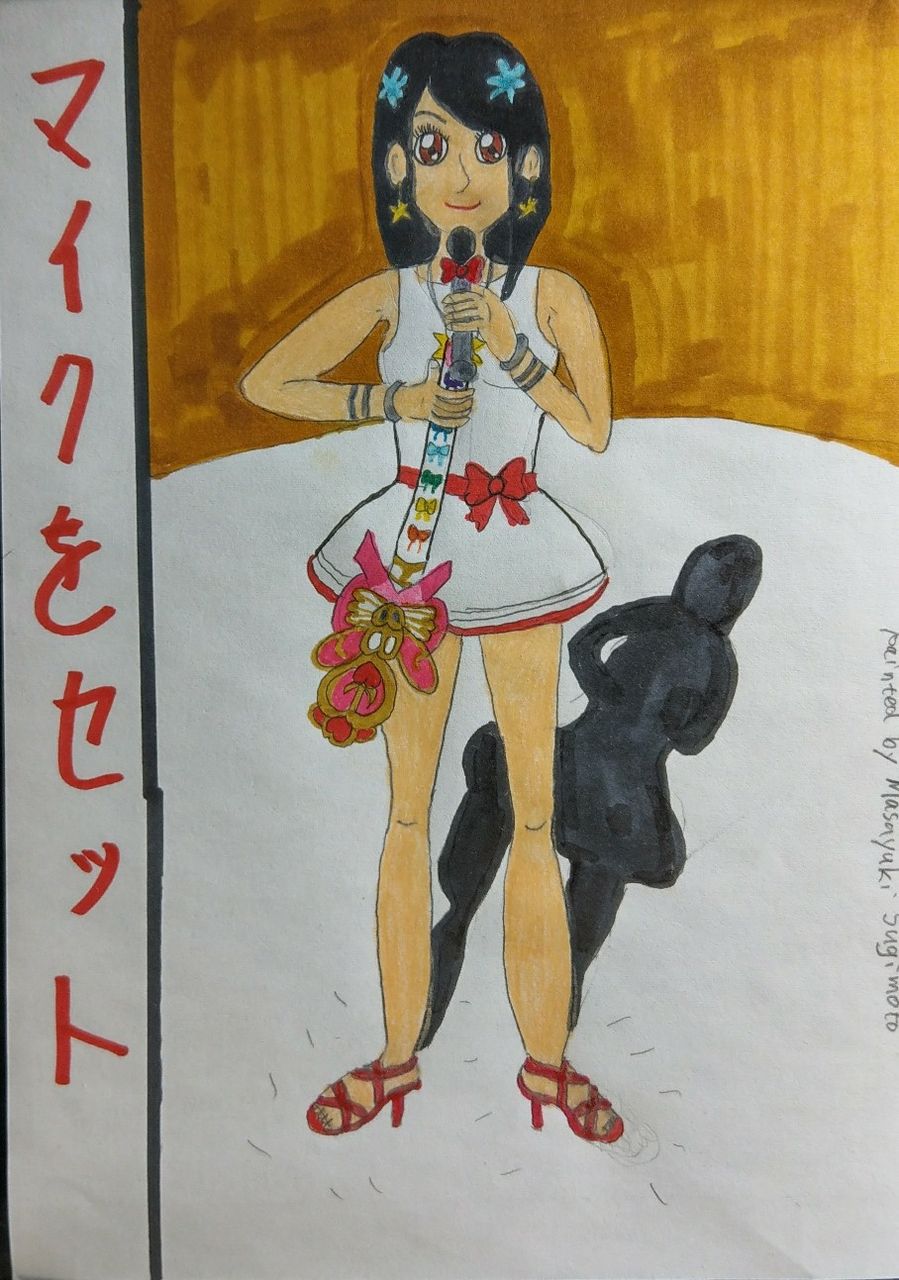 マイクをセット
painted by Masayuki Sugimoto